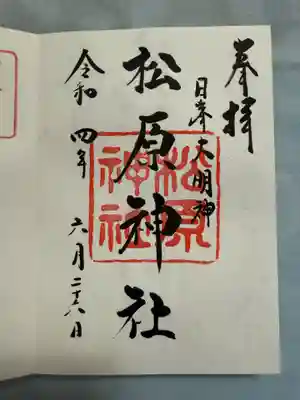 奉拝
日峯大明神
松原神社
松原
神社
令和四年六月二十六日